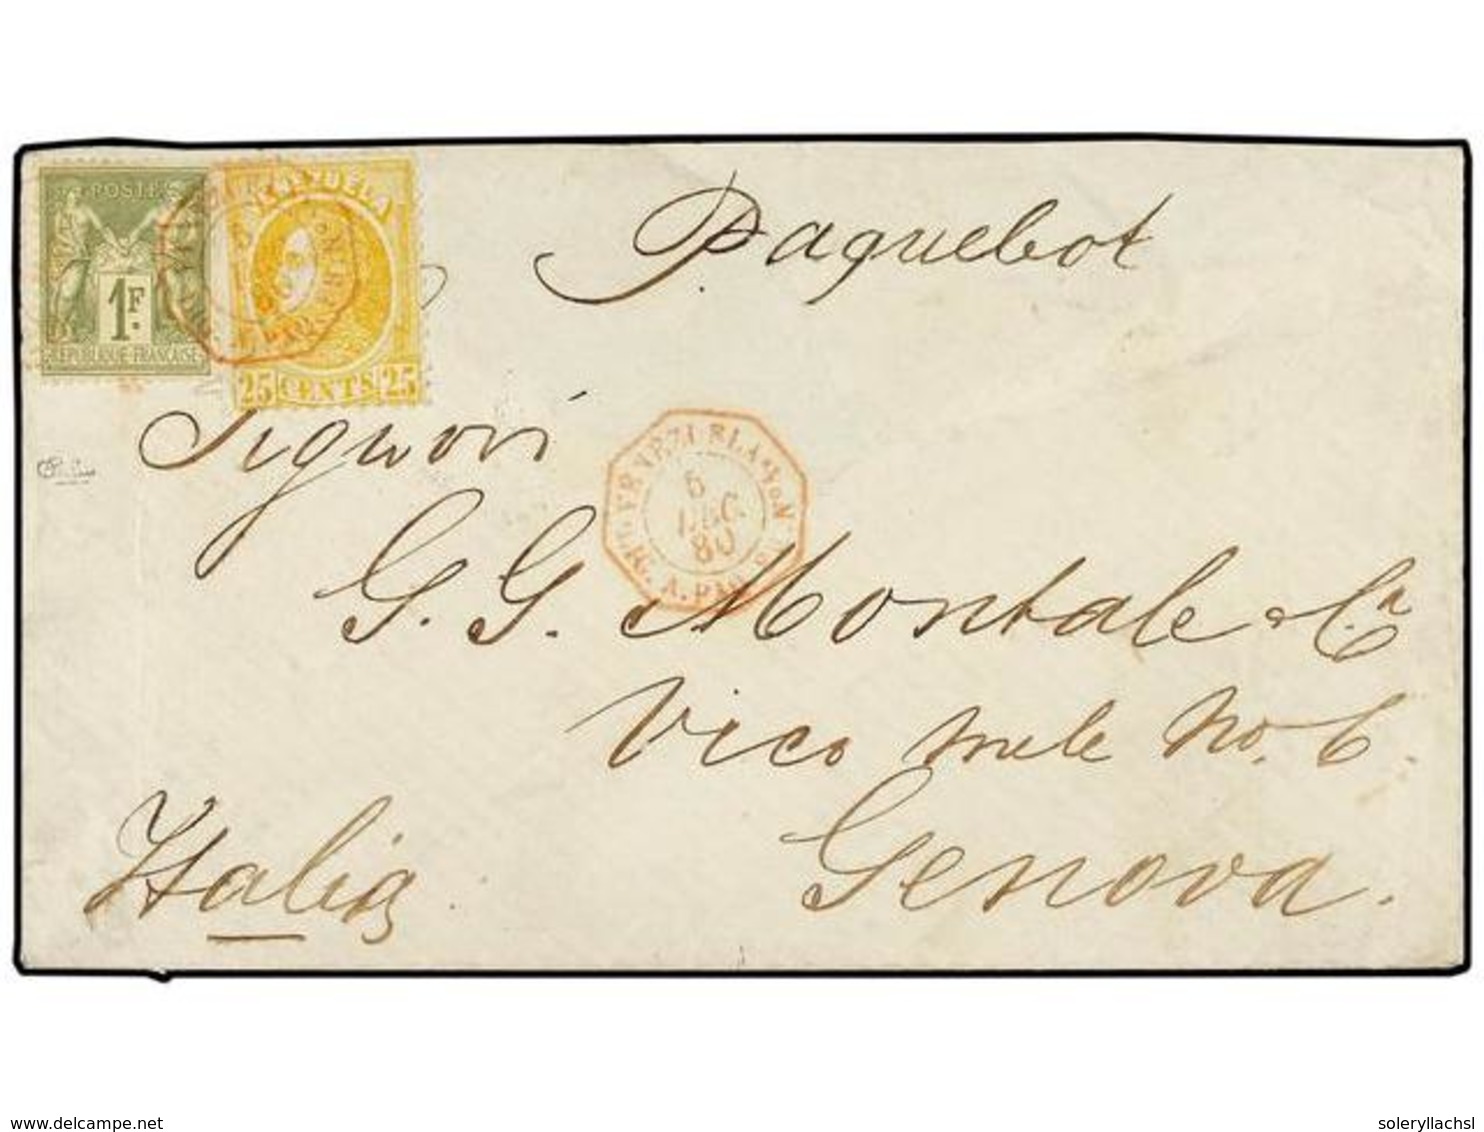 POSTES
1F
REPUBLIQUE FRANÇAISE
25 CENTS 25
Paquebot
Signori
VENEZUELA
6
DEC.
80
LIG. A. PAQ.
G. G. Montale & Ca
Vico mele No. 6.
Genova.
Italia
www.delcampe.net
soleryllachsl